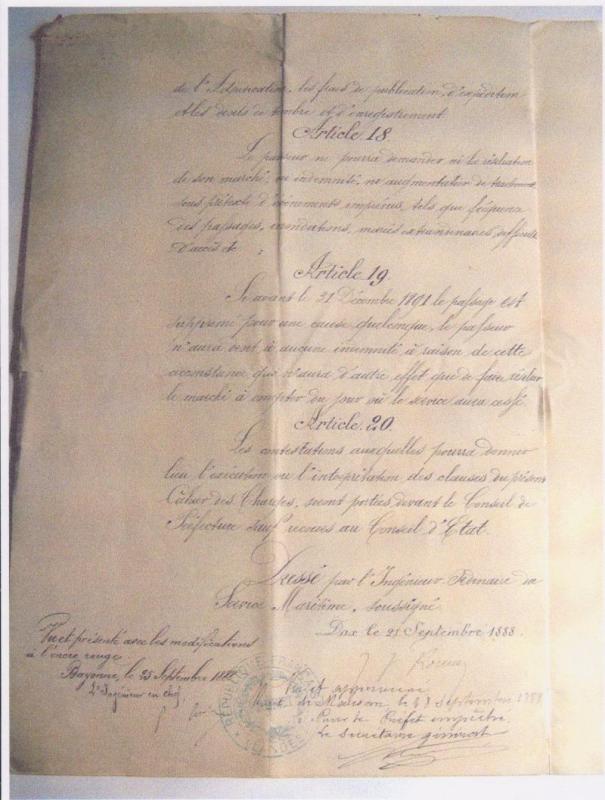 de l'Adjudication, les frais de publication, d'expédition
et les droits de timbre et d'enregistrement.
Article 18.
Le passeur ne pourra demander ni la résiliation
de son marché, ni indemnité, ni augmentation de
sous prétexte d'événements imprévus, tels que fréquence
des passages, inondations, marées extraordinaires, difficulté
d'accès etc.
Article 19.
Si avant le 31 Décembre 1891 le passage est
supprimé pour une cause quelconque, le passeur
n'aura droit à aucune indemnité à raison de cette
circonstance qui n'aura d'autre effet que de faire résilier
le marché à compter du jour où le service aura cessé.
Article 20.
Les contestations auxquelles pourra donner
lieu l'exécution ou l'interprétation des clauses du présent
Cahier des Charges, seront portées devant le Conseil de
Préfecture sauf recours au Conseil d'Etat.
Dressé par l'Ingénieur Ordinaire du
Service Maritime, soussigné
Dax le 21 Septembre 1888.
Vu et présenté avec les modifications
à l'encre rouge
Bayonne, le 25 Septembre
L'Ingénieur en chef
Vu et approuvé
Mont de Marsan, le Septembre
Pour le Préfet empêché
Le Secrétaire général
REPUBLIQUE FRANCAISE
LANDES